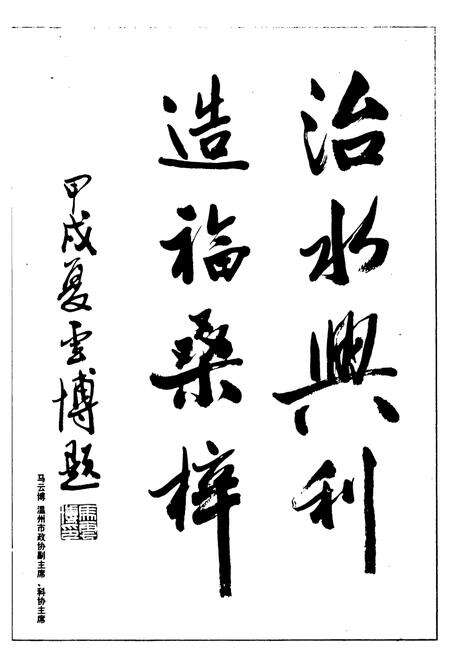 治水興利
造福桑梓
甲戌夏雲博題
马云博 温州市政协副主席、科协主席